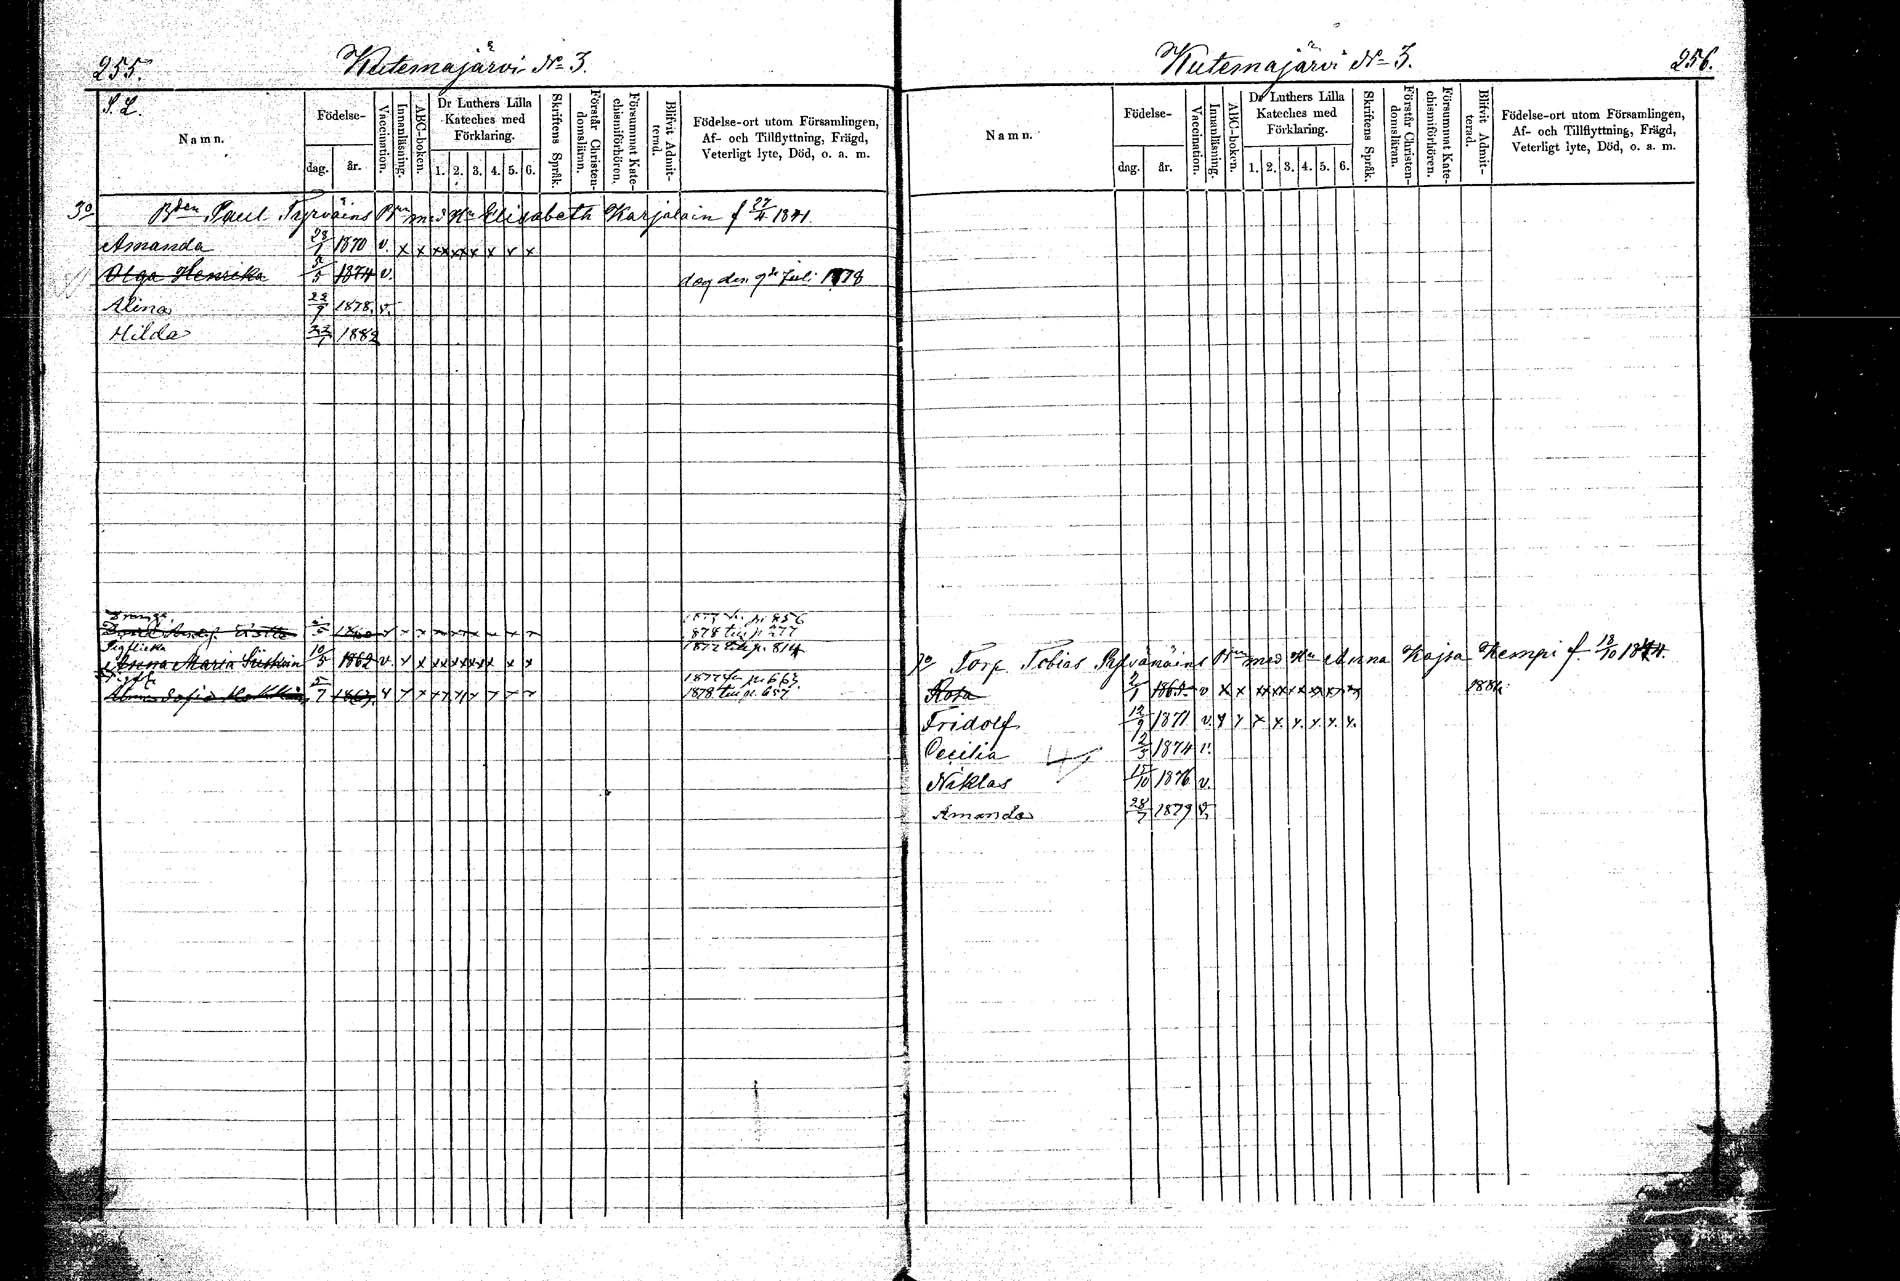 255.
Kutemajärvi No 3.
S. L.
Namn.
Födelse-
dag.
år.
Vaccination.
Innanläsning.
ABC-boken.
Dr Luthers Lilla
Kateches med
Förklaring.
1. 2. 3. 4. 5. 6.
Skriftens Språk.
Förstår Christen-
domsläran.
Försummat Kate-
chismiförhören.
Blifvit Admit-
terad.
Födelse-ort utom Församlingen,
Af- och Tillflyttning, Frägd,
Veterligt lyte, Död, o. a. m.
3o Bden Paul Tyrväins Brn med Hu Elisabeth Karjalain f 27/4 1841.
Amanda 28/1 1870 v. x x x x x x x x x x
Olga Henrika 5/5 1874 v. dog den 9de Juli 1878
Alina 22/9 1878. v.
Hilda 23/1 1882
Dreng.
1878 till p 277
Pigflicka
Anna Maria Siiskoin 10/5 1862 v. x x x x x x x x x x
1877 fr. p. 663
Sofia 1878 till p. 657.
256.
Kutemajärvi No 3.
Namn.
Födelse-
dag.
år.
Vaccination.
Innanläsning.
ABC-boken.
Dr Luthers Lilla
Kateches med
Förklaring.
1. 2. 3. 4. 5. 6.
Skriftens Språk.
Förstår Christen-
domsläran.
Försummat Kate-
chismiförhören.
Blifvit Admit-
terad.
Födelse-ort utom Församlingen,
Af- och Tillflyttning, Frägd,
Veterligt lyte, Död, o. a. m.
7o Torp Tobias Pylvänäins Brn med Hu Anna Kajsa Kempi f. 18/10 1844.
Rosa 2/1 1868 v x x x x x x x x x x 1884
Fridolf 12/9 1871 v. x x x x x x x x
Cecilia 12/3 1874 v.
Niklas 15/10 1876 v.
Amanda 28/7 1879 v.